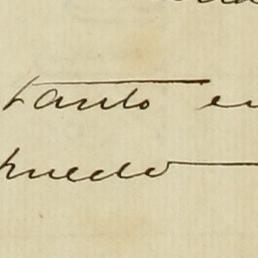 tanto en
puedo